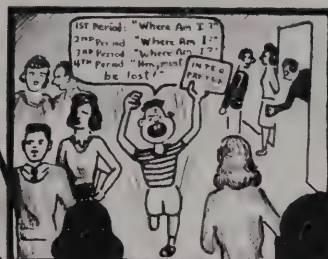 1ST Period: "Where Am I?"
2ND Period "Where Am I?"
3RD Period "Where Am I?"
4TH Period "Hm, must
be lost!"
INTER
PRETER